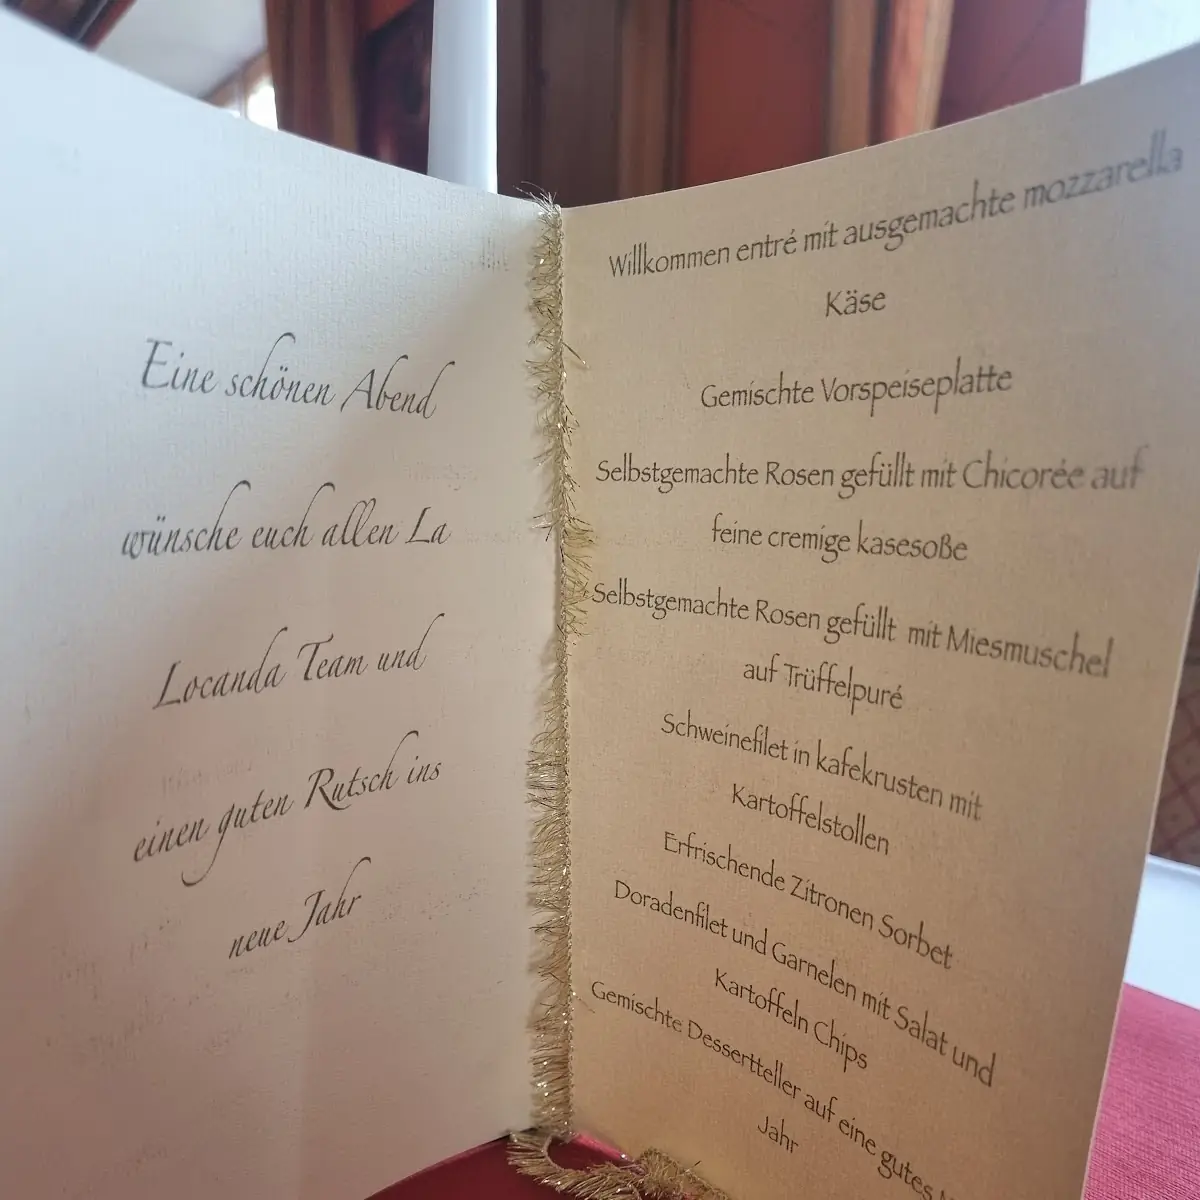 Eine schönen Abend
wünsche euch allen La
Locanda Team und
einen guten Rutsch ins
neue Jahr
Willkommen entré mit ausgemachte mozzarella
Käse
Gemischte Vorspeiseplatte
Selbstgemachte Rosen gefüllt mit Chicorée auf
feine cremige kasesoße
Selbstgemachte Rosen gefüllt mit Miesmuschel
auf Trüffelpuré
Schweinefilet in kafekrusten mit
Kartoffelstollen
Erfrischende Zitronen Sorbet
Doradenfilet und Garnelen mit Salat und
Kartoffeln Chips
Gemischte Dessertteller auf eine gutes
Jahr